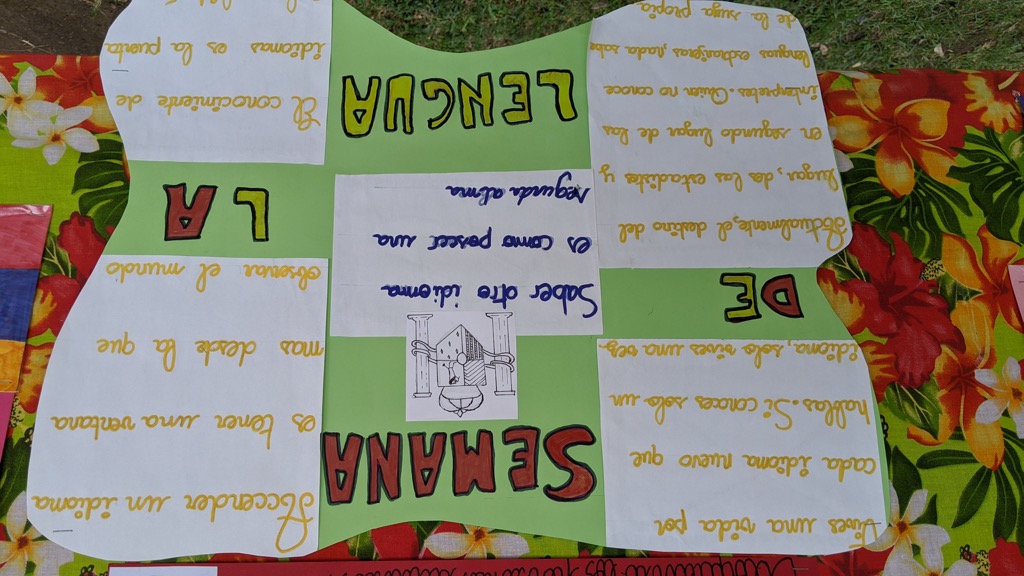 SEMANA
Vives una vida por
cada idioma nuevo que
hablas. Si conoces solo un
idioma, solo vives una vez
Accender un idioma
es tener una ventana
mas desde la que
observar el mundo
DE
Saber otro idioma
es como poseer una
segunda alma
LA
Actualmente, el destino del
lugar, de las estadistes y
en segundo lugar de las
interpretes. Quien no conoce
lenguas extranjeras, nada sabe
de la suya propia
El conocimiente de
idiomas es la puerta
LENGUA